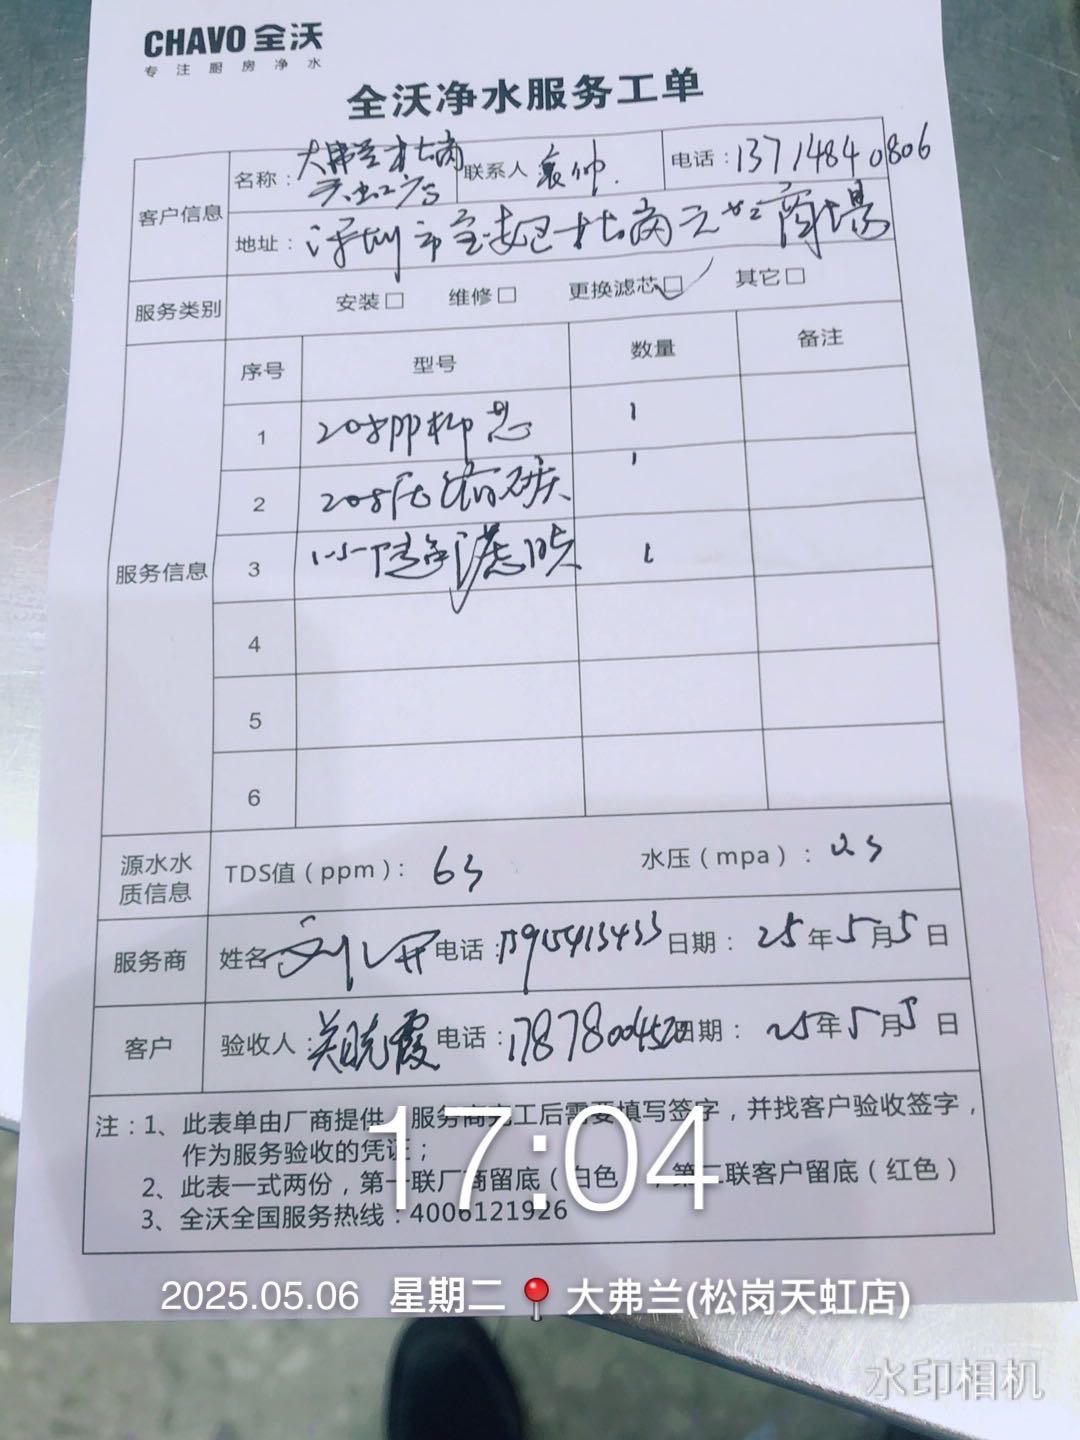 CHAVO 全沃
专注厨房净水
全沃净水服务工单
客户信息
名称：大弗兰松岗天虹店
联系人：袁帅.
电话：13714840806
地址：深圳市宝安区松岗天虹商场
服务类别
安装□ 维修□ 更换滤芯□✓ 其它□
服务信息
序号 型号 数量 备注
1 1
2 208压缩碳 1
3 1
4
5
6
源水水质信息
TDS值（ppm）：63 水压（mpa）：
服务商 姓名 电话： 日期：25年5月5日
客户 验收人：关晓霞 电话： 日期：25年5月5日
注：1、此表单由厂商提供，服务商完工后需要填写签字，并找客户验收签字，
作为服务验收的凭证；
2、此表一式两份，第一联厂商留底（白色），第二联客户留底（红色）
3、全沃全国服务热线：4006121926
17:04
2025.05.06 星期二 大弗兰(松岗天虹店)
水印相机